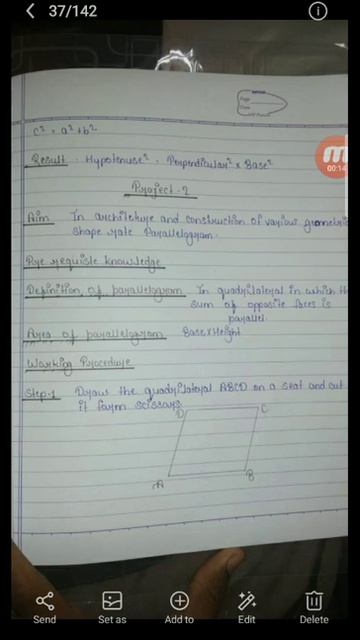 37/142
c² = a² + b²
Result : Hypotenuse² = Perpendicular² × Base²
00:14
Project-2
Aim In architeture and construction of various geometric
shape
Parallelogram.
Pre requiste knowledge
Definition of parallelogram In quadrilateral in which the
sum of opposite faces is
parallel.
Area of parallelogram Base×Height
Working Procedure
Step-1 Draw the quadrilateral ABCD on a seat and cut
it form scissors
D C
A B
Send Set as Add to Edit Delete